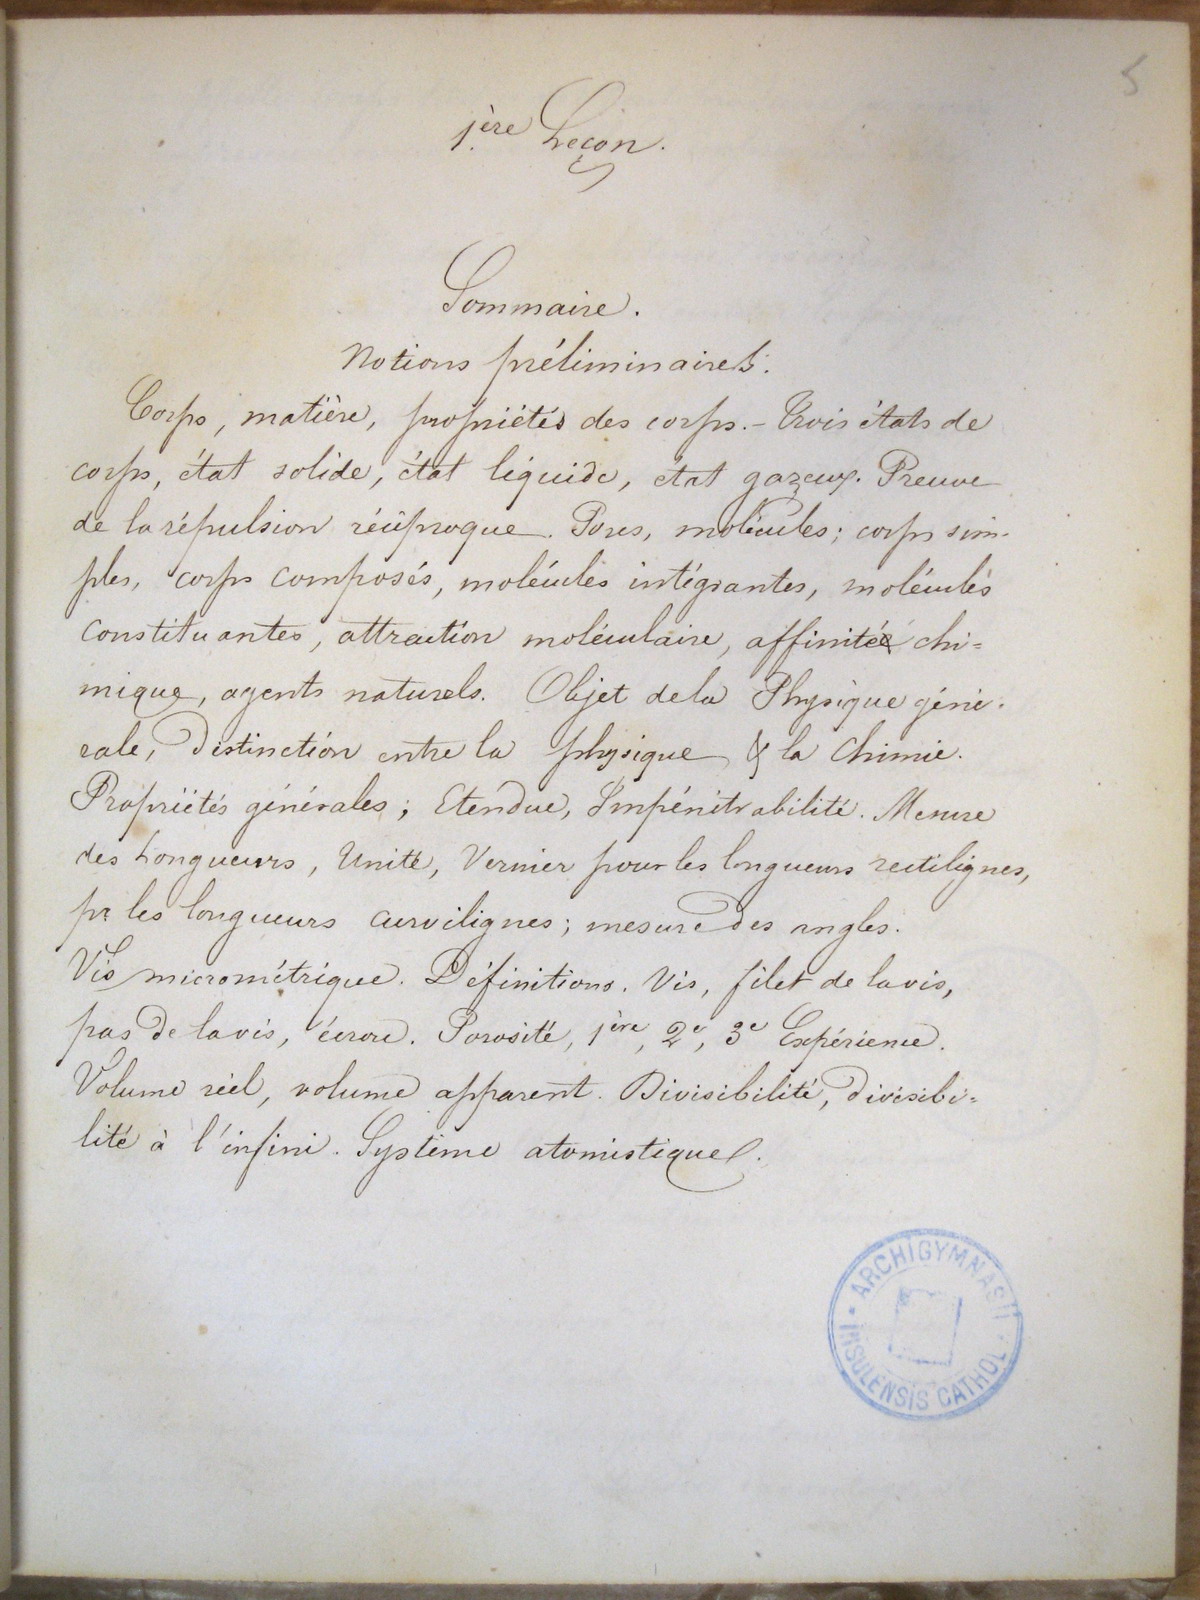 5
1.ère Leçon.
Sommaire.
Notions préliminaires.
Corps, matière, propriétés des corps. - Trois états de
corps, état solide, état liquide, état gazeux. Preuve
de la répulsion réciproque. Pores, molécules; corps sim-
ples, corps composés, molécules intégrantes, molécules
constituantes, attraction moléculaire, affinité chi=
mique, agents naturels. Objet de la Physique géné-
rale, Distinction entre la physique & la Chimie.
Propriétés générales; Etendue, Impénétrabilité. Mesure
des Longueurs, Unité, Vernier pour les longueurs rectilignes,
pr les longueurs curvilignes; mesure des angles.
Vis micrométrique. Définitions. Vis, filet de la vis,
pas de la vis, écrou. Porosité, 1ère, 2e, 3e Expérience.
Volume réel, volume apparent. Divisibilité, divisibi=
lité à l'infini. Système atomistique.
ARCHIGYMNASII
INSULENSIS CATHOL